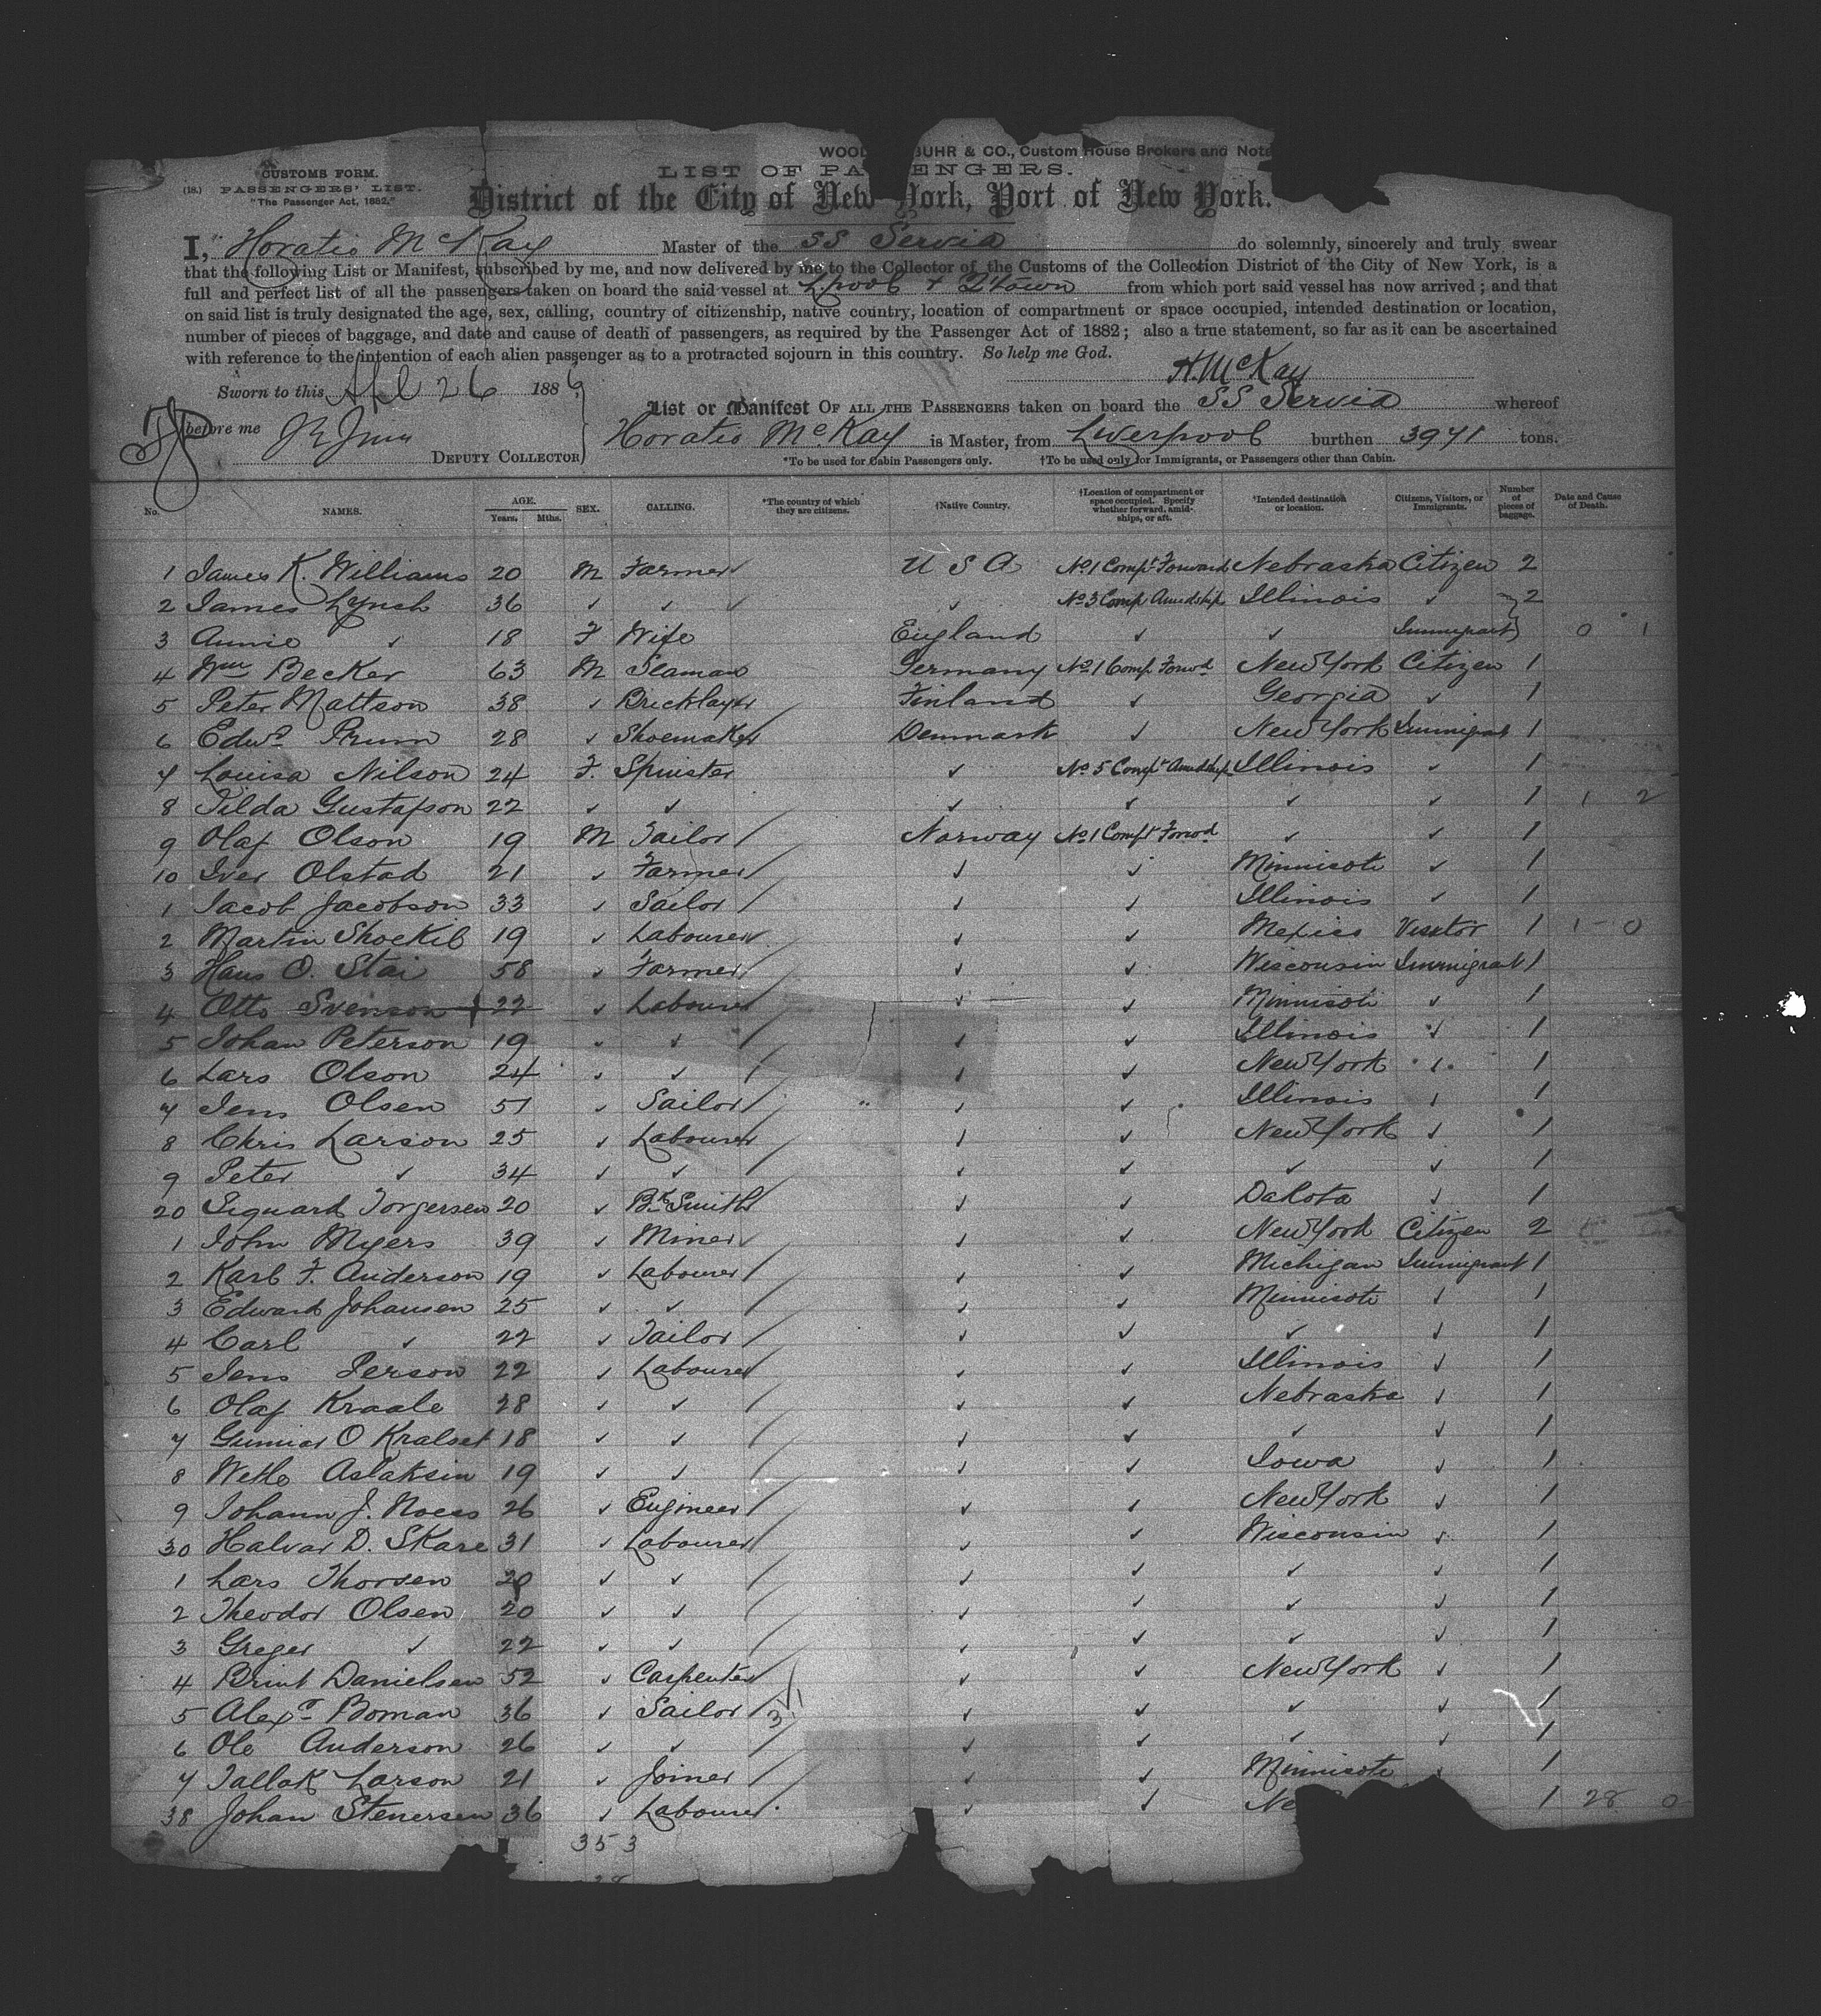 WOOD BUHR & CO., Custom House Brokers and Note
CUSTOMS FORM.
(18.) PASSENGERS' LIST.
"The Passenger Act, 1882."
LIST OF PA ENGERS.
District of the City of New York, Port of New York.
I, Horatio McKay Master of the SS Servia do solemnly, sincerely and truly swear
that the following List or Manifest, subscribed by me, and now delivered by me to the Collector of the Customs of the Collection District of the City of New York, is a
full and perfect list of all the passengers taken on board the said vessel at Lpool + Qtown from which port said vessel has now arrived; and that
on said list is truly designated the age, sex, calling, country of citizenship, native country, location of compartment or space occupied, intended destination or location,
number of pieces of baggage, and date and cause of death of passengers, as required by the Passenger Act of 1882; also a true statement, so far as it can be ascertained
with reference to the intention of each alien passenger as to a protracted sojourn in this country. So help me God.
H. McKay
Sworn to this Apl 26 1886
before me
DEPUTY COLLECTOR
List or Manifest OF ALL THE PASSENGERS taken on board the SS Servia whereof
Horatio McKay is Master, from Liverpool burthen 3971 tons.
*To be used for Cabin Passengers only. †To be used only for Immigrants, or Passengers other than Cabin.
No. NAMES. AGE. Years. Mths. SEX. CALLING. *The country of which they are citizens. †Native Country. †Location of compartment or space occupied. Specify whether forward, amidships, or aft. *Intended destination or location. Citizens, Visitors, or Immigrants. Number of pieces of baggage. Date and Cause of Death.
1 James K. Williams 20 M Farmer U S A No 1 Compt Forward Nebraska Citizen 2
2 James Lynch 36 ✓ ✓ ✓ No 3 Comp Amidship Illinois ✓ 2
3 Annie ✓ 18 F Wife England ✓ ✓ Immigrant 0 1
4 Wm Becker 63 M Seaman Germany No 1 Comp Forwd New York Citizen 1
5 Peter Mattson 38 ✓ Bricklayer Finland ✓ Georgia ✓ 1
6 Edwd Prum 28 ✓ Shoemaker Denmark ✓ New York Immigrant 1
7 Louisa Nilson 24 F. Spinster ✓ No 5 Compt Amidship Illinois ✓ 1
8 Tilda Gustafson 22 ✓ ✓ ✓ ✓ ✓ ✓ 1 1 2
9 Olaf Olson 19 M Tailor Norway No 1 Compt Forwd ✓ ✓ 1
10 Iver Olstad 21 ✓ Farmer ✓ ✓ Minnisota ✓ 1
1 Jacob Jacobson 33 ✓ Sailor ✓ ✓ Illinois ✓ 1
2 Martin Shockil 19 ✓ Labourer ✓ ✓ Mexico Visitor 1 1 - 0
3 Hans O. Stai 58 ✓ Farmer ✓ ✓ Wisconsin Immigrant 1
4 Otto Svenson 22 ✓ Labourer ✓ ✓ Minnisota ✓ 1
5 Johan Peterson 19 ✓ ✓ ✓ ✓ Illinois ✓ 1
6 Lars Olson 24 ✓ ✓ ✓ ✓ New York ✓ 1
7 Jens Olsen 51 ✓ Sailor ✓ ✓ Illinois ✓ 1
8 Chris Larson 25 ✓ Labourer ✓ ✓ New York ✓ 1
9 Peter ✓ 34 ✓ ✓ ✓ ✓ ✓ ✓ 1
20 Siguard Torgersen 20 ✓ Bk Smith ✓ ✓ Dakota ✓ 1
1 John Myers 39 ✓ Miner ✓ ✓ New York Citizen 2
2 Karl F. Anderson 19 ✓ Labourer ✓ ✓ Michigan Immigrant 1
3 Edward Johansen 25 ✓ ✓ ✓ ✓ Minnisota ✓ 1
4 Carl ✓ 22 ✓ Tailor ✓ ✓ ✓ ✓ 1
5 Jens Person 22 ✓ Labourer ✓ ✓ Illinois ✓ 1
6 Olaf Kraale 28 ✓ ✓ ✓ ✓ Nebraska ✓ 1
7 Gunnar O Kralset 18 ✓ ✓ ✓ ✓ ✓ ✓ 1
8 Aslaksin 19 ✓ ✓ ✓ ✓ Iowa ✓ 1
9 Johann J. Noess 26 ✓ Engineer ✓ ✓ New York ✓ 1
30 Halvar D. Skare 31 ✓ Labourer ✓ ✓ Wisconsin ✓ 1
1 Lars Thorsen 20 ✓ ✓ ✓ ✓ ✓ ✓ 1
2 Theodor Olsen 20 ✓ ✓ ✓ ✓ ✓ ✓ 1
3 Greger ✓ 22 ✓ ✓ ✓ ✓ ✓ ✓ 1
4 Brint Danielsen 52 ✓ Carpenter ✓ ✓ New York ✓ 1
5 Alexr Boman 36 ✓ Sailor ✓ ✓ ✓ ✓ 1
6 Ole Anderson 26 ✓ ✓ ✓ ✓ ✓ ✓ 1
7 Tallak Larson 21 ✓ Joiner ✓ ✓ Minnisota ✓ 1
38 Johan Stenersen 36 ✓ Labourer ✓ ✓ Ne 1 28 0
353